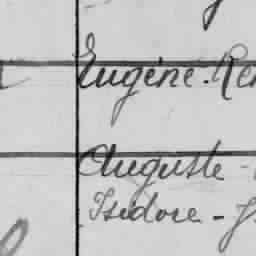 Eugène. Re
Auguste -
Isidore - J